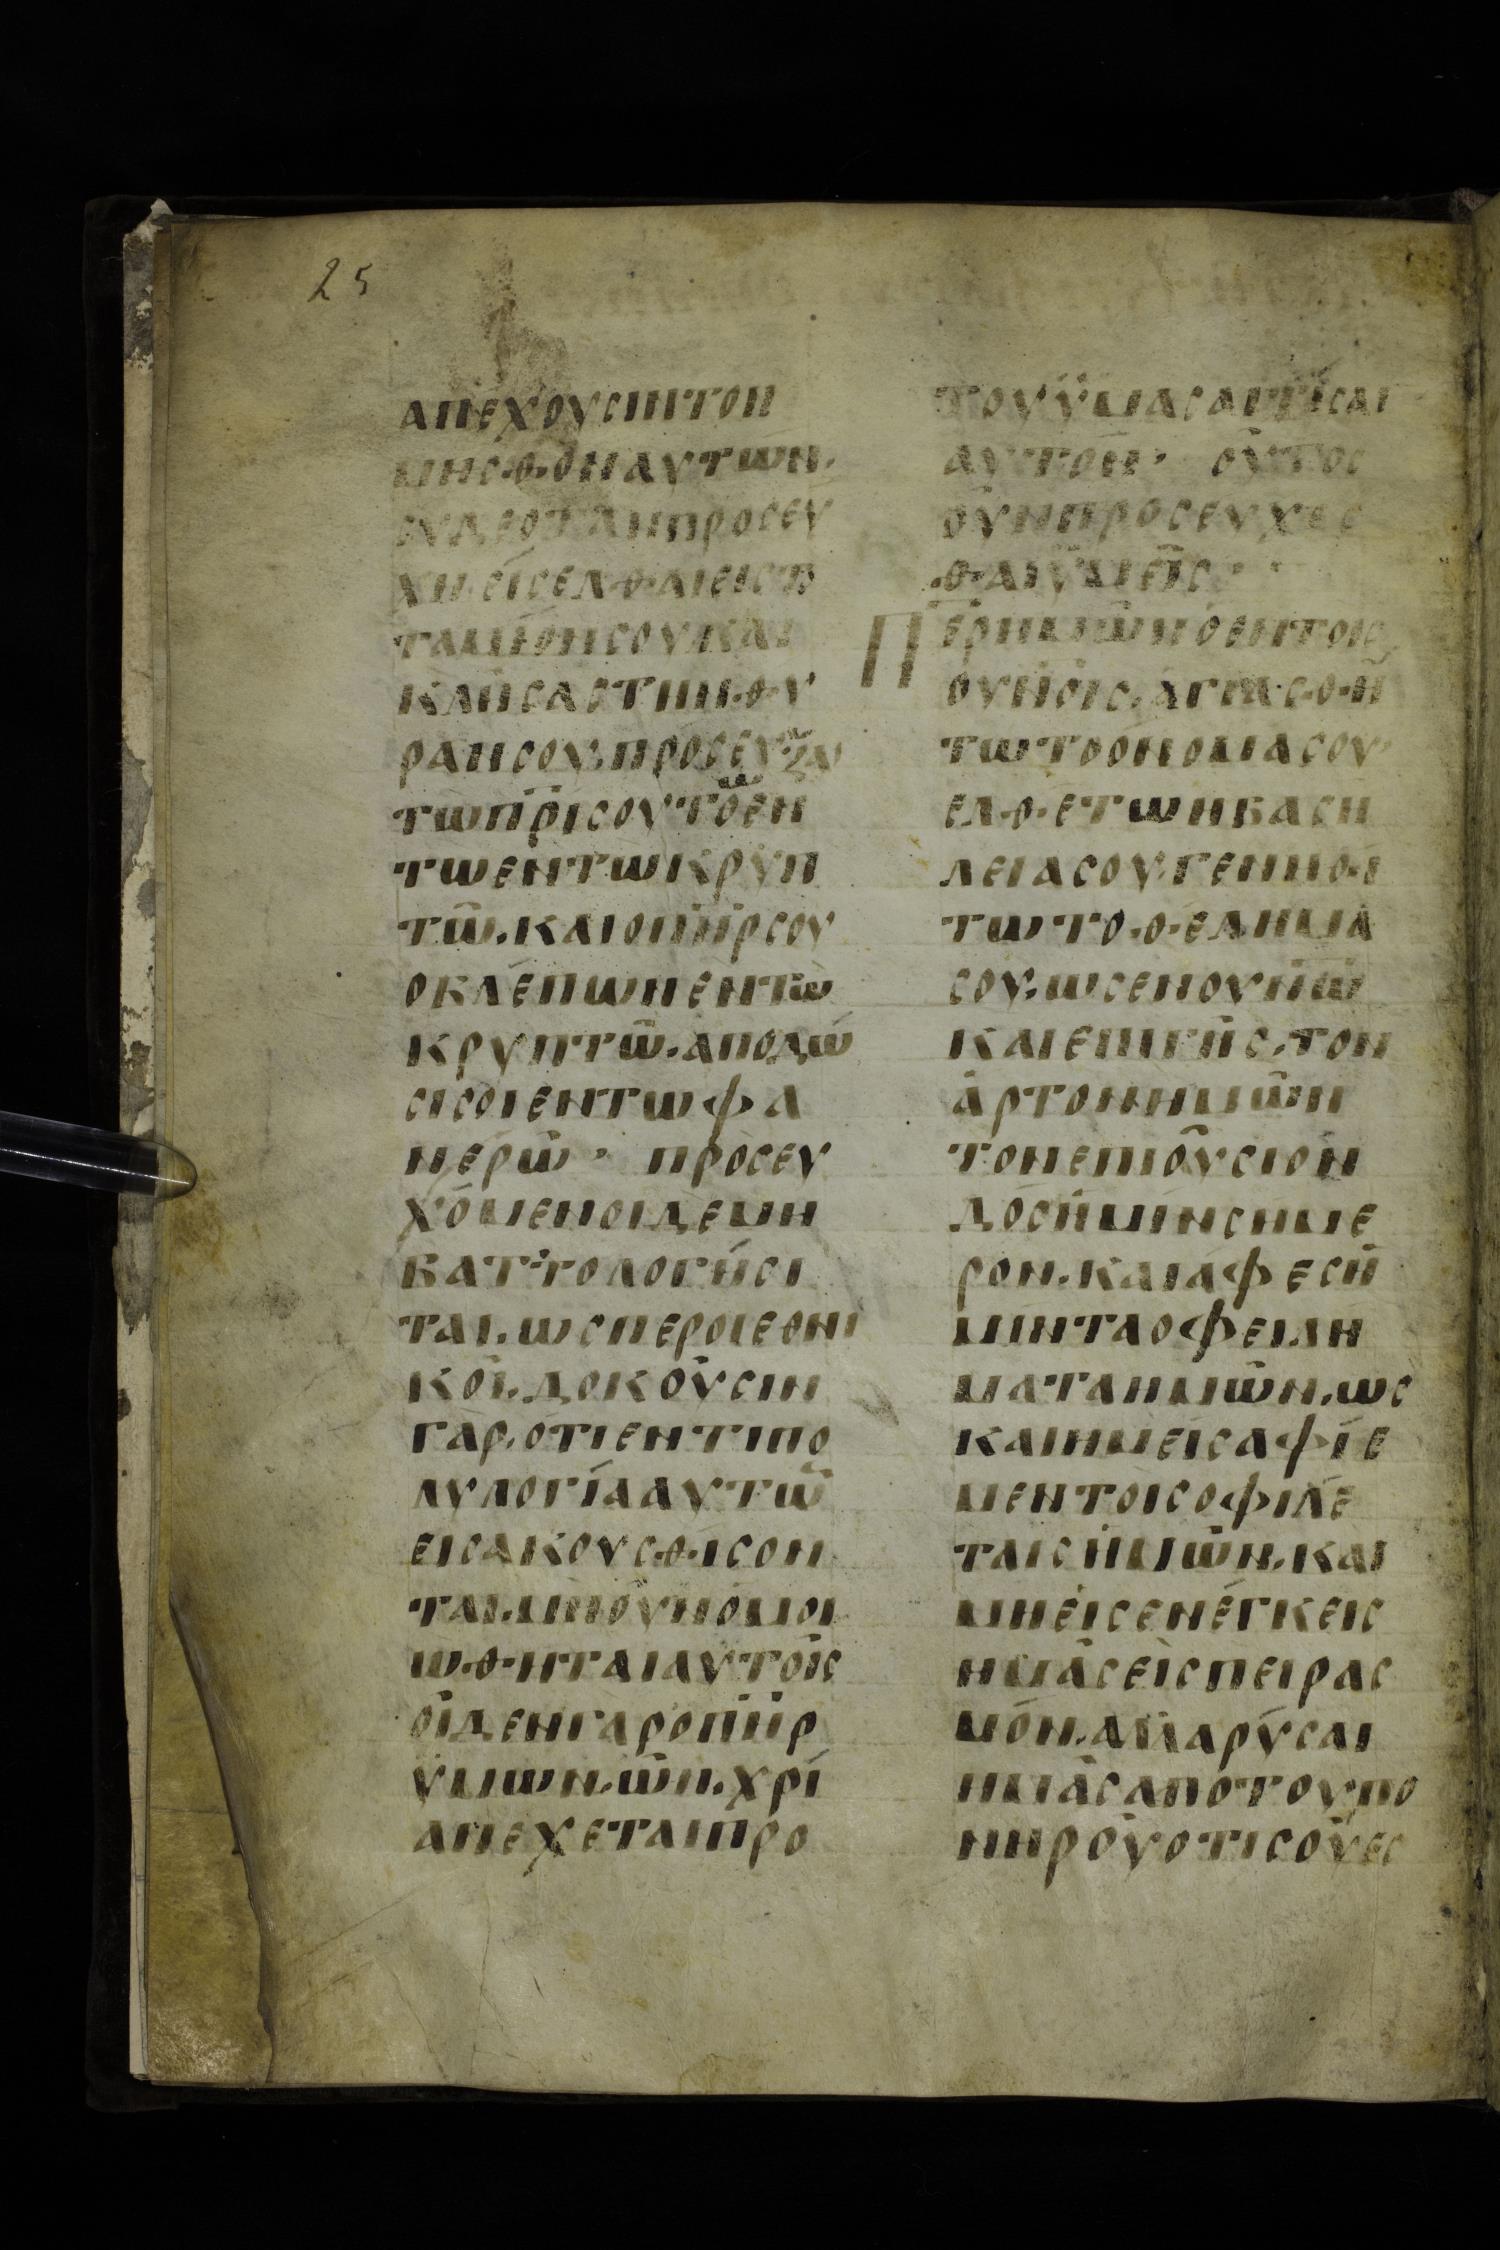 25
ΑΠΕΧΟΥCΙΝΤΟΝ
ΜΗCΘΟΝΑΥΤΩΝ.
CΥΔΕΟΤΑΝΠΡΟCΕΥ
ΧΗ.ΕΙCΕΛΘΑΙΕΙCΤΟ
ΤΑΜΗΟΝCΟΥ.ΚΑΙ
ΚΛΗCΑCΤΗΝΘΥ
ΡΑΝCΟΥ.ΠΡΟCΕΥΞΑΙ
ΤΩΠΡΙCΟΥΤΟΕΝ
ΤΩΕΝΤΩΚΡΥΠ
ΤΩ.ΚΑΙΟΠΗΡCΟΥ
ΟΚΛΕΠΩΝΕΝΤΩ
ΚΡΥΠΤΩ.ΑΠΟΔΩ
CΙCΟΙΕΝΤΩΦΑ
ΝΕΡΩ· ΠΡΟCΕΥ
ΧΟΜΕΝΟΙΔΕΜΗ
ΒΑΤΤΟΛΟΓΗCΙ
ΤΑΙ.ΩCΠΕΡΟΙΕΘΝΙ
ΚΟΙ.ΔΟΚΟΥCΙΝ
ΓΑΡ.ΟΤΙΕΝΤΙΠΟ
ΛΥΛΟΓΙΑΑΥΤΩ
ΕΙCΑΚΟΥCΘΙCΟΝ
ΤΑΙ.ΜΗΟΥΝΟΜΟΙ
ΩΘΗΤΑΙΑΥΤΟΙC
ΟΙΔΕΝΓΑΡΟΠΗΡ
ΥΜΩΝ.ΩΝ.ΧΡΙ
ΑΠΕΧΕΤΑΙΠΡΟ
ΤΟΥΥΜΑCΑΙΤΗCΑΙ
ΑΥΤΟΝ· ΟΥΤΟC
ΟΥΝΠΡΟCΕΥΧΕC
ΘΑΙΥΜΕΙC·
ΠΕΡΗΜΩΝΟΕΝΤΟΙC
ΟΥΝΟΙC.ΑΓΙΑCΘΗ
ΤΩΤΟΟΝΟΜΑCΟΥ·
ΕΛΘΕΤΩΗΒΑCΗ
ΛΕΙΑCΟΥ.ΓΕΝΝΘΙ
ΤΩΤΟΘΕΛΗΜΑ
CΟΥ.ΩCΕΝΟΥΝΩ
ΚΑΙΕΠΙΓΗC.ΤΟΝ
ΑΡΤΟΝΗΜΩΝ
ΤΟΝΕΠΙΟΥCΙΟΝ
ΔΟCΗΜΙΝCΗΜΕ
ΡΟΝ.ΚΑΙΑΦΕCΗ
ΜΙΝΤΑΟΦΕΙΛΗ
ΜΑΤΑΗΜΩΝ.ΩC
ΚΑΙΗΜΕΙCΑΦΙΕ
ΜΕΝΤΟΙCΟΦΙΛΕ
ΤΑΙCΗΜΩΝ.ΚΑΙ
ΜΗΕΙCΕΝΕΓΚΕΙC
ΗΜΑCΕΙCΠΕΙΡΑC
ΜΟΝ.ΑΛΛΑΡΥCΑΙ
ΗΜΑCΑΠΟΤΟΥΠΟ
ΝΗΡΟΥΟΤΙCΟΥΕC